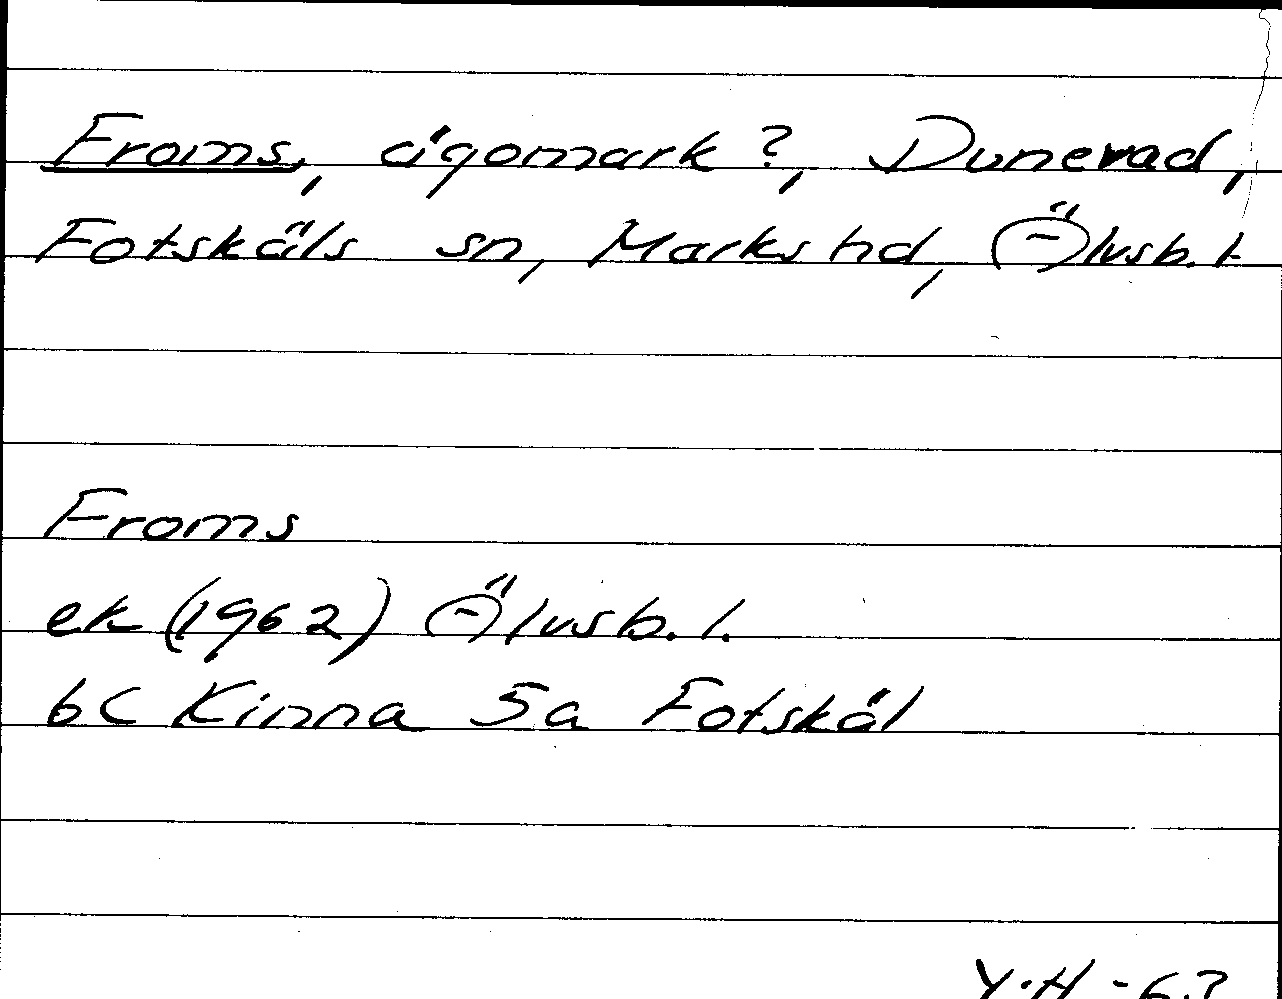 Froms, ägomark?, Dunevad,
Fotskäls sn, Marks hd, Älvsb. l.
Froms
ek (1962) Älvsb. l.
6C Kinna 5a Fotskäl
Y.H -63